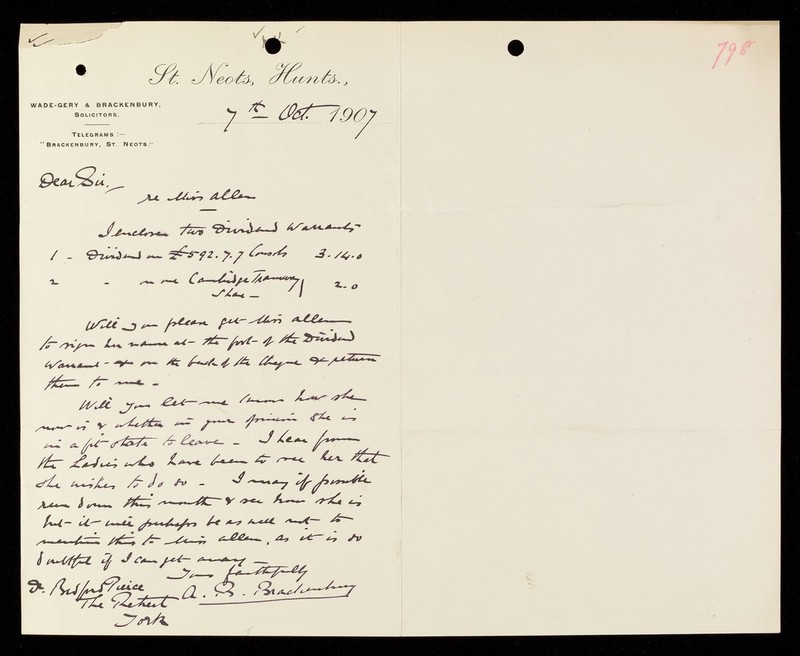 798
St. Neots, Hunts.,
WADE-GERY & BRACKENBURY,
SOLICITORS.
TELEGRAMS:—
"BRACKENBURY, ST. NEOTS."
7th Oct. 1907
Dear Sir,
re Miss Allen
I enclose two Dividend Warrants
1 - Dividend on £592.7.7 Consols 3.14.0
2 - " on one Cambridge Tramway
Share - 2.0
Will you please get Miss Allen
to sign her name at the foot of the Dividend
Warrant & on the back of the Cheque & return
them to me -
Will you let me know how she
now is & whether in your opinion she is
in a fit state to leave - I hear from
the Ladies who have been to see her that
she wishes to do so - I may if possible
run down this month & see how she is
but it will perhaps be as well not to
mention this to Miss Allen, as it is so
doubtful if I can get away -
Yours faithfully
A. B. Brackenbury
Dr. Bedford Pierce
The Retreat
York